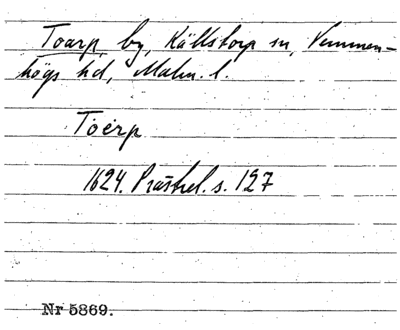 Toarp, by, Källstorp sn, Vemmen-
högs hd, Malm. l.
Toerp
1624. Prästrel. s. 127
Nr 5869.